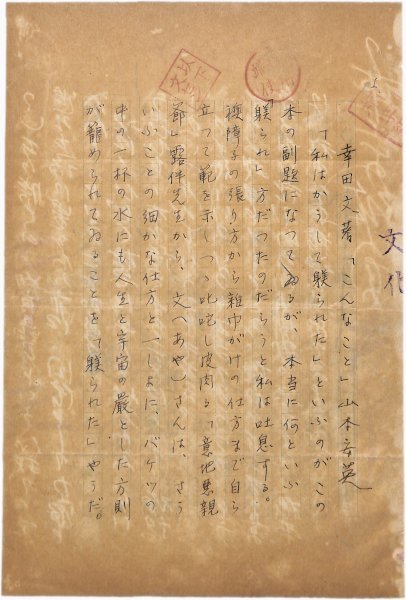 文化
幸田文著「こんなこと」山本安英
「私はかうして躾られた」といふのがこの
本の副題になつてゐるが、本当に何といふ
「躾られ」方だつたのだらうと私は吐息する。
襖障子の張り方から雑巾がけの仕方まで自ら
立つて範を示しつゝ叱咤し皮肉る「意地悪親
爺」露伴先生から、文(あや)さんは、さう
いふことの細かな仕方と一しよに、バケツの
中の一杯の水にも人生と宇宙の厳とした方則
が籠められてゐることを「躾られた」やうだ。